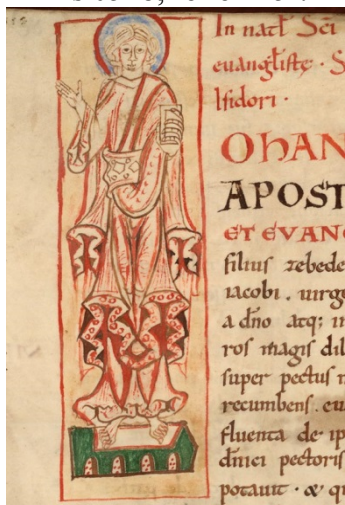 In natł Sc̄i
euangłiste · S
Isidori ·
OhAN
APOST
ET EVANG
filius zebede
iacobi . uirgo
a dño atq; in
ros magis dil
super pectus
recumbens . eu
fluenta de ip
dñici pectoris
potauit · & q